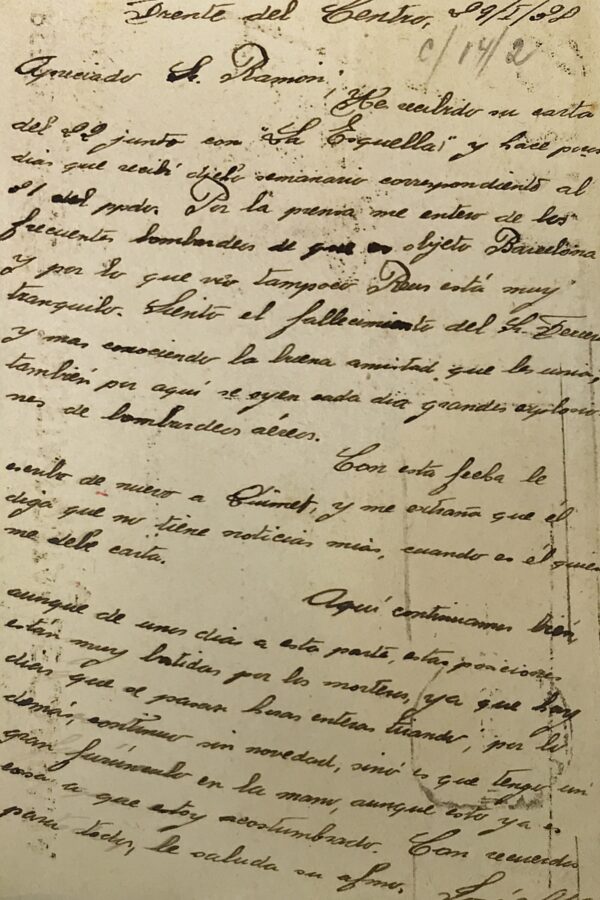 Frente del Centro, 29/I/38
C/14/2
Apreciado Sr. Ramón;
He recibido su carta
del 22 junto con "La Esquella," y hace pocos
dias que recibí dicho semanario correspondiente al
31 del ppdo. Por la prensa me entero de los
frecuentes bombardeos de que es objeto Barcelona
y por lo que veo tampoco Reus está muy
tranquilo. Siento el fallecimiento del Sr.
y mas conociendo la buena amistad que les unia,
también por aquí se oyen cada dia grandes explosio-
nes de bombardeos aéreos.
Con esta fecha le
escribo de nuevo a Quimet, y me extraña que él
diga que no tiene noticias mias, cuando es él quien
me debe carta.
Aquí continuamos bien,
aunque de unos dias a esta parte, estas posiciones
están muy batidas por los morteros, ya que hay
dias que se pasan horas enteras tirando; por lo
demás, continuo sin novedad, sinó es que tengo un
gran furúnculo en la mano, aunque esto ya es
cosa a que estoy acostumbrado. Con recuerdos
para todos, le saluda su afmo.